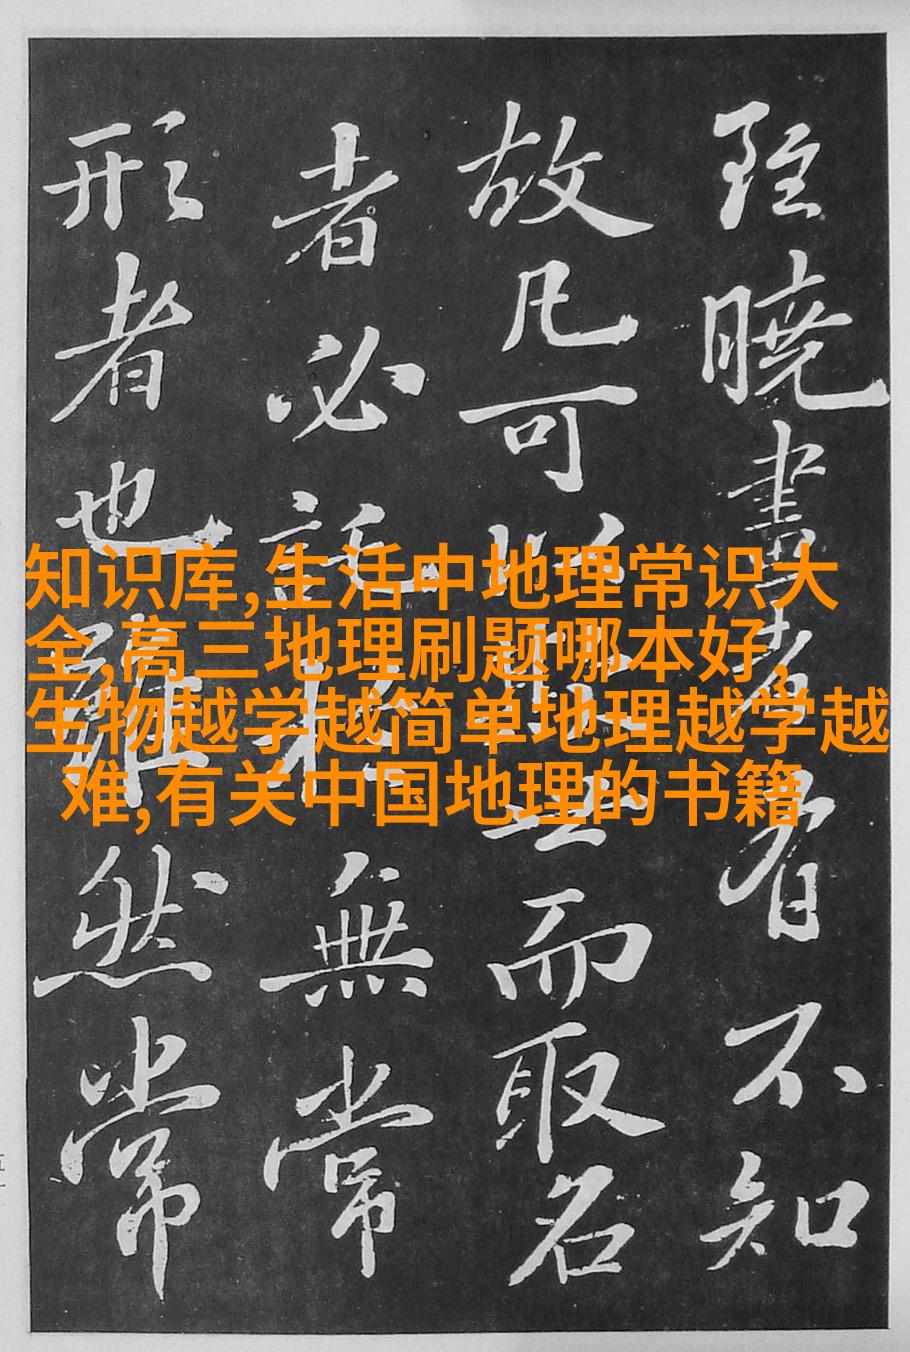 雖曉畫者有不知
故凡可以欺世而取名
者必託於無常
形者也雖然常
知识库,生活中地理常识大
全,高三地理刷题哪本好,
生物越学越简单地理越学越
难,有关中国地理的书籍